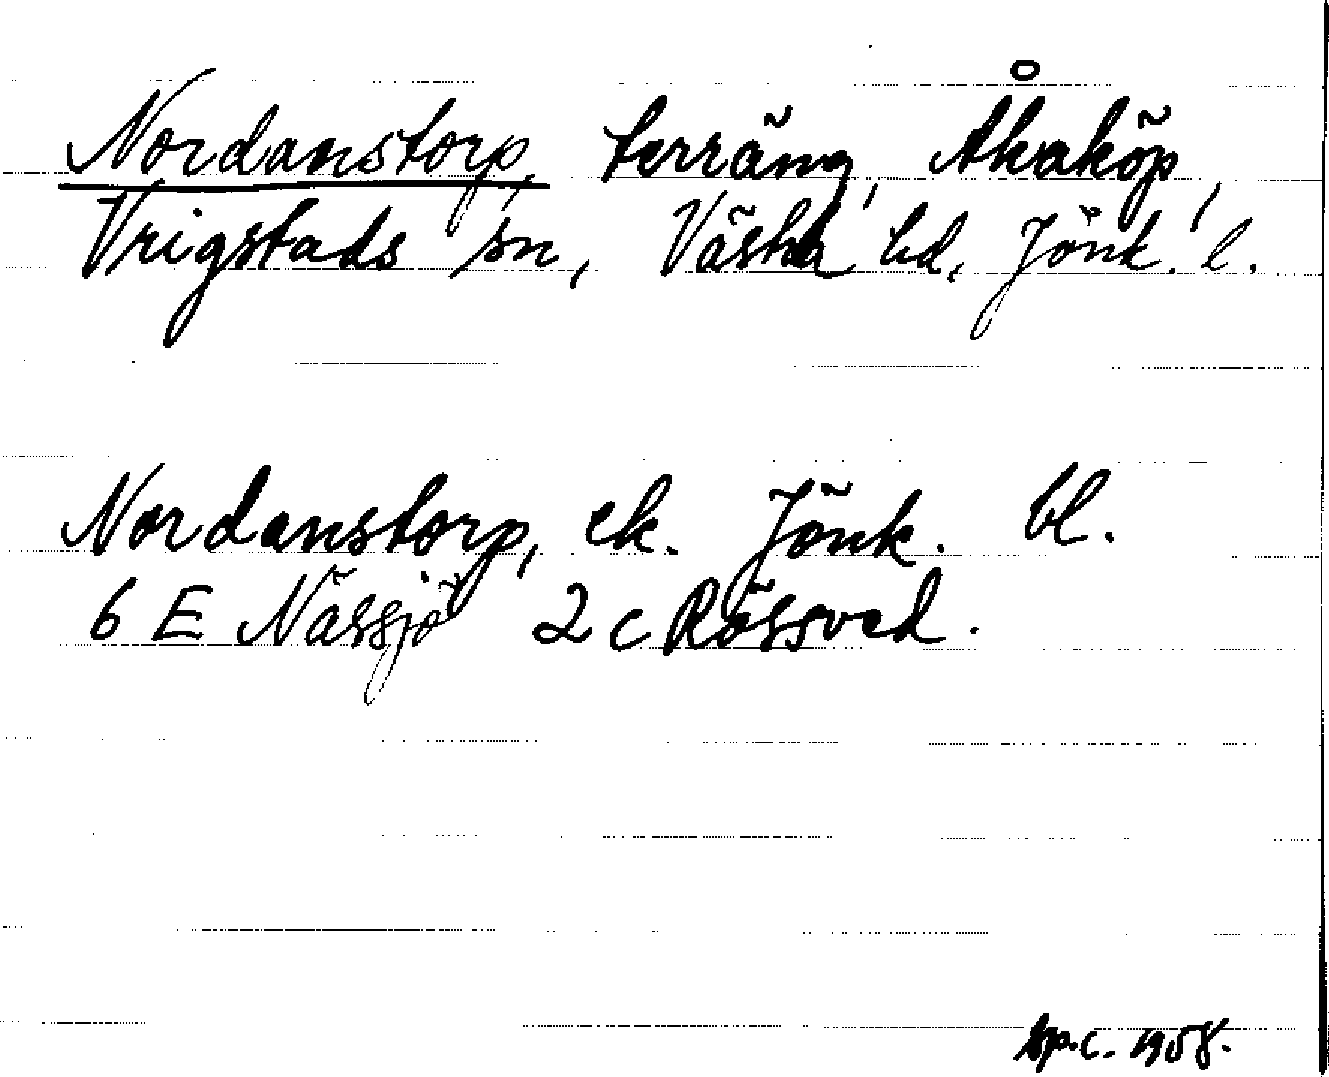 Nordanstorp, terräng, Åkaköp,
Vrigstads sn, Västra hd, Jönk. l.
Nordanstorp, ek. Jönk. bl.
6 E Nässjö 2 c Rössved.
1958.